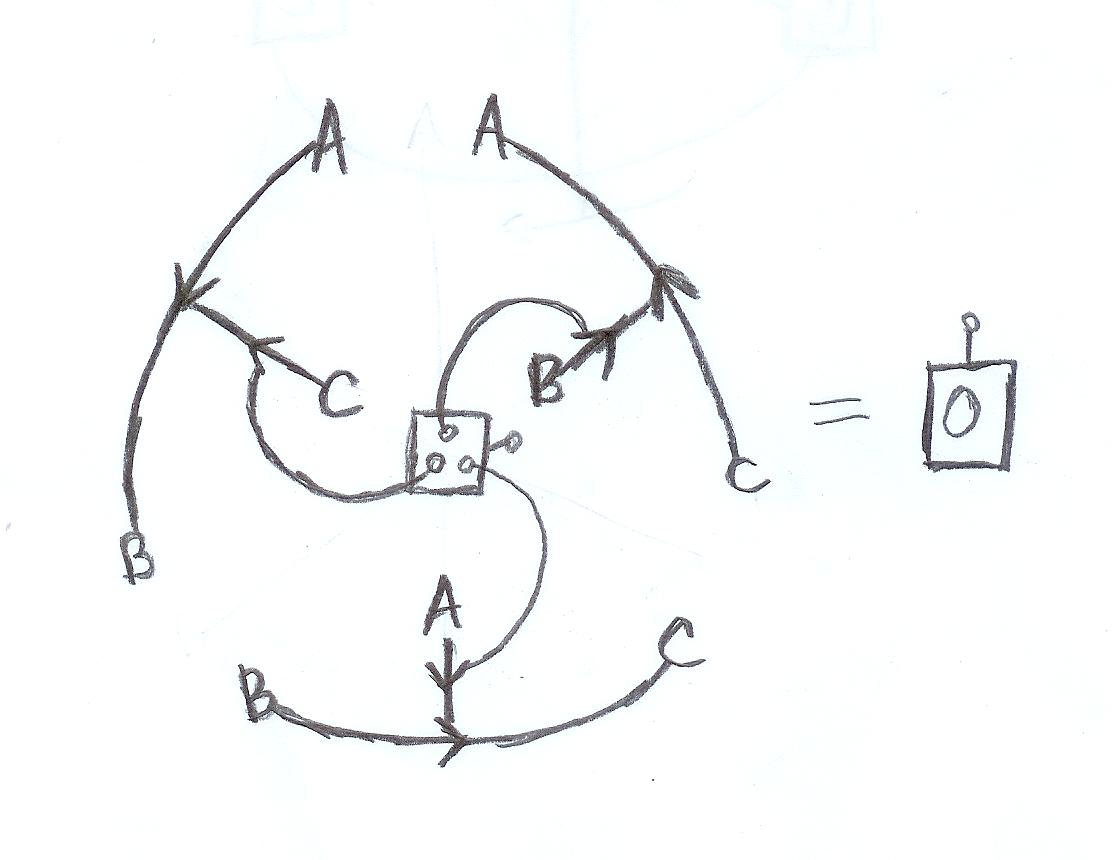 A A
C B = 0
B C
A
B C